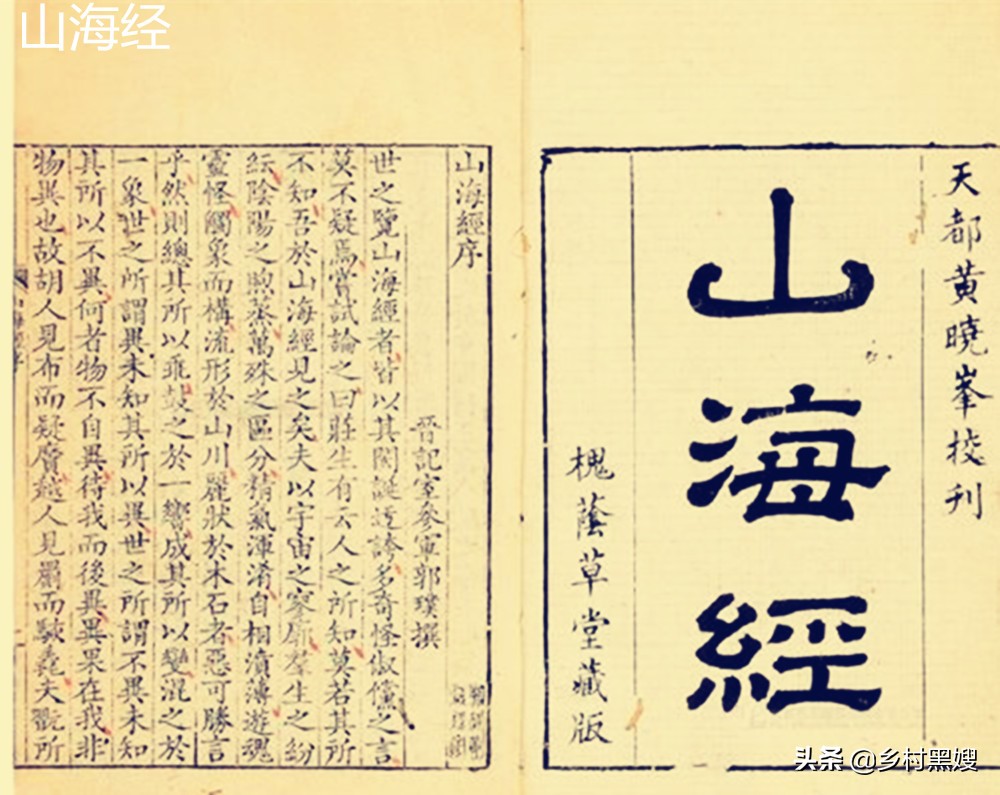 山海经
天都黄曉峯挍刊
山海經
槐蔭草堂藏版
山海經序
晉記室參軍郭璞撰
世之覽山海經者皆以其閎誕迂誇多奇怪俶儻之言
莫不疑焉嘗試論之曰莊生有云人之所知莫若其所
不知吾於山海經見之矣夫以宇宙之寥廓羣生之紛
紜陰陽之煦蒸萬殊之區分精氣渾淆自相濆薄遊魂
靈怪觸象而構流形於山川麗狀於木石者惡可勝言
乎然則總其所以乖鼓之於一響成其所以變混之於
一象世之所謂異未知其所以異世之所謂不異未知
其所以不異何者物不自異待我而後異異果在我非
物異也故胡人見布而疑黂越人見罽而駭毳夫翫所
头条 @乡村黑嫂